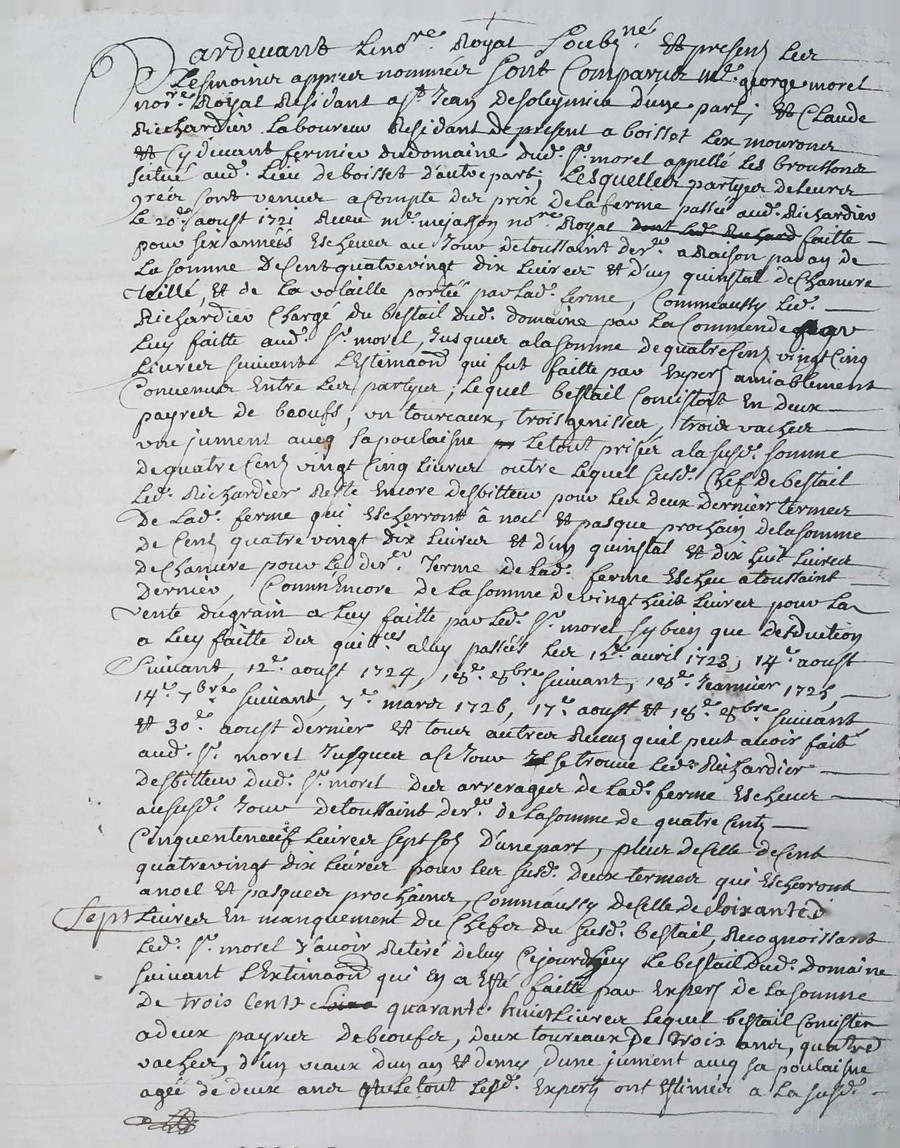 Pardevant Le no.re Royal Soubz.né et presens Les
Tesmoins appres nommées sont Comparus m.e george morel
no.re Royal Residant a s.t Jean desoleymieu d'une part; et Claude
Richardier Laboureur Residant de present a boisset Les mourons
et Cy devant fermier du domaine dud. s.r morel appellé Les broussons
scitué aud. Lieu de boisset d'autre part; Lesquelles partyes de leurs
grées sont venues a Compte des prix de la ferme passée aud. Richardier
Le 20.e aoust 1721 Receu m.e mejasson no.re Royal faitte
pour six années Escheues au Jour de toussaint der.er a Raison par an de
La somme De Cent quatrevingt dix Livres et d'un quinstal de Chanvre
teillé, et de La volaille portée par Lad. ferme, Comme aussy Led.
Richardier Chargé du bestail dud. domaine par La Commende
Luy faitte aud. s.r morel, Jusques a la somme de quatre Cens vingt Cinq
Livres suivant L'Estimaon qui fut faitte par Expers amiablement
Convenus Entre Les partyes; Lequel bestail Consistoit En deux
payres de boeufs, un toureaux, trois genisses, trois vaches
une jument aveq sa poulaisne Le tout prisée a la susd. somme
de quatre Cens vingt Cinq Livres outre Lequel susd. Chef de bestail
Led. Richardier Reste Encore desbitteur pour Les deux derniers termes
de Lad. ferme qui Escherront â noel et pasque prochain de la somme
de Cens quatre vingt dix Livres et d'un quinstal et dix huit Livres
de Chanvre pour Led. der.er Terme de Lad. ferme Escheu a toussaint
dernier, Comm'Encore de La somme de vingt huit Livres pour La
vente du grain a Luy faitte par Led. s.r morel sy bien que desduction
a Luy faitte des quit.ces a luy passées Les 12.e avril 1723, 14.e aoust
suivant, 12.e aoust 1724, 18.e 8bre suivant, 18.e Jeanvier 1725,
14.e 7bre suivant, 7.e mars 1726, 17.e aoust et 18.e 8bre suivant
et 30.e aoust dernier et tous autres Receus quil peut avoir faitt
aud. s.r morel Jusques a ce Jour se trouve Led. Richardier
desbitteur dud. s.r morel des arrerages de Lad. ferme Escheus
au susd. Jour de toussaint der.er de La somme de quatre Cents
Cinquenteneuf Livres sept sos d'une part, plus de Celle de Cent
quatrevingt dix Livres pour Les susd. deux termes qui Escherront
a noel et pasques prochains, Comm'aussy de Celle de soixante d
sept Livres En manquement du Chefs du susd. bestail, Recognoissant
Led. s.r morel d'avoir Retiré de luy Cejourd'huy Le bestail dud. domaine
suivant L'Extimaon qui En a Esté faitte par Expers de La somme
De trois Cents quarante huit Livres Lequel bestail Consisten
a deux payres de boeufs, deux toureaux De trois ans, quatre
vaches, d'un veaux d'un an et demy, d'une jument aveq sa poulaisne
agée de deux ans Le tout Lesd. Experts ont Estimées a La susd.